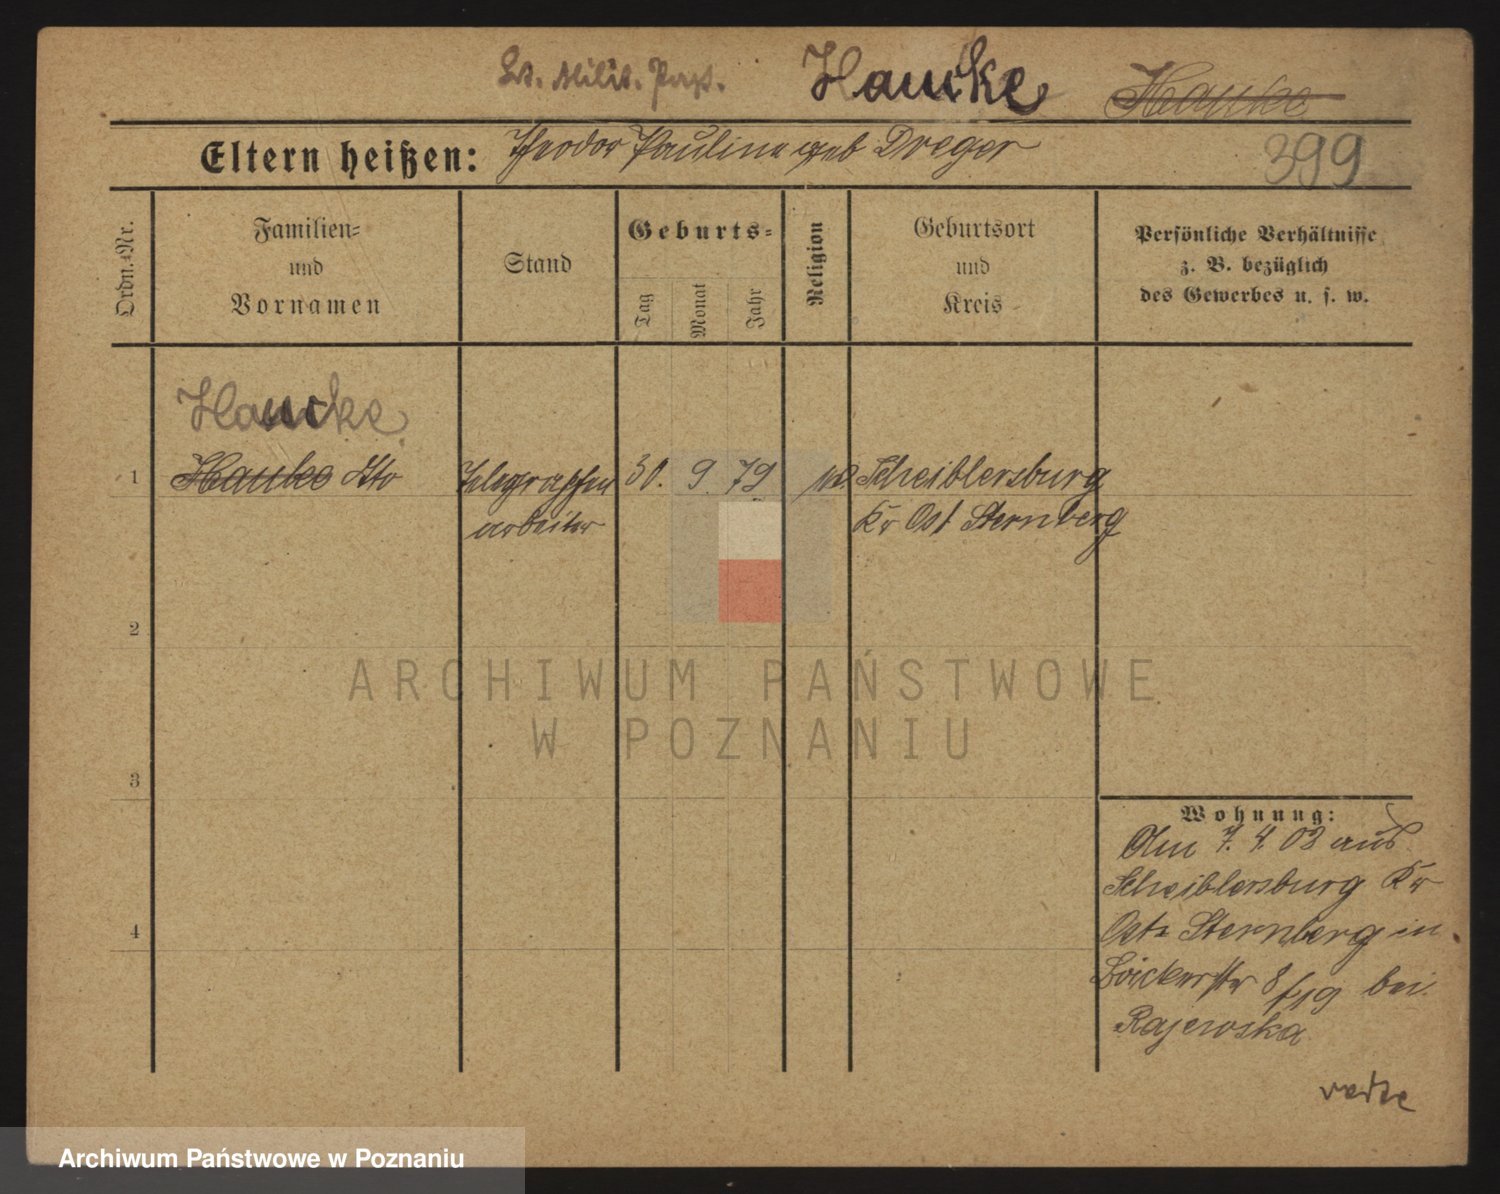 Lt. Milit. Pap. Haucke Hauke
Eltern heißen: Theodor Pauline geb Dreger 399
Ordn.-Nr.
Familien-
und
Vornamen
Stand
Geburts-
Tag
Monat
Jahr
Religion
Geburtsort
und
Kreis
Persönliche Verhältnisse
z. B. bezüglich
des Gewerbes u. s. w.
Haucke
1 Hauke Otto Telegraphen 30. 9. 79 Scheiblersburg
arbeiter Kr Ost Sternberg
2
3
4
Wohnung:
Am 7. 4. 03 aus
Scheiblersburg Kr
Ost Sternberg in
8 bei
Rajewska
ARCHIWUM PAŃSTWOWE
W POZNANIU
Archiwum Państwowe w Poznaniu